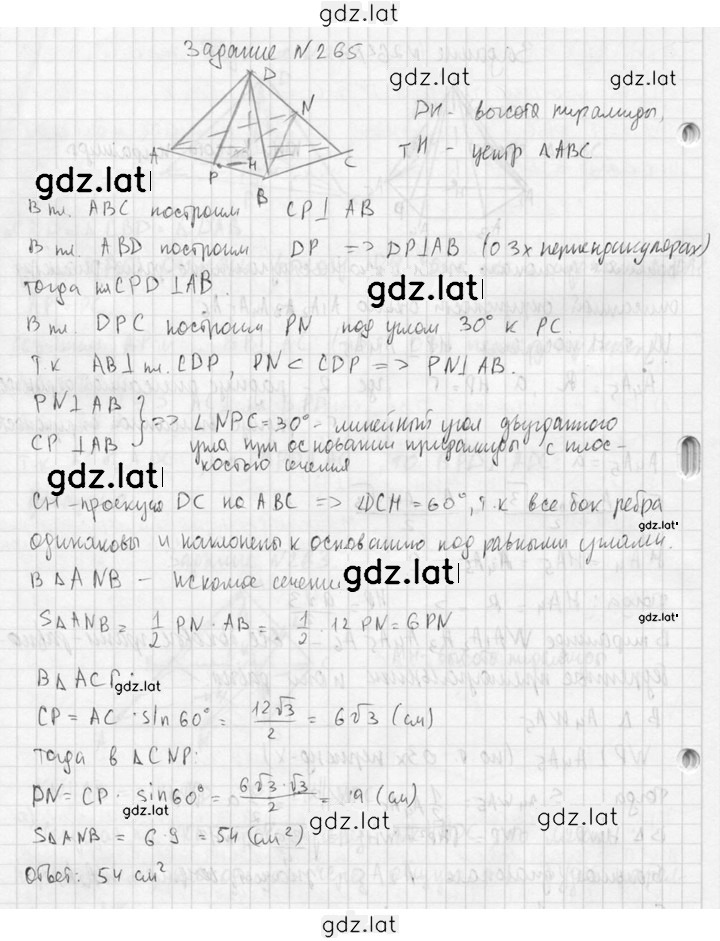 gdz.lat
Задание N 265
gdz.lat
gdz.lat
D
N
A
P
H
B
C
DH - высота пирамиды,
т H - центр ΔABC
gdz.lat
В пл. ABC построим CP⊥AB
В пл. ABD построим DP => DP⊥AB (о 3х перпендикулярах)
тогда плCPD ⊥AB.
gdz.lat
В пл. DPC построим PN под углом 30° к PC.
т.к AB⊥пл.CDP, PN⊂CDP => PN⊥AB.
PN⊥AB
CP⊥AB } => ∠NPC=30° - линейный угол двугранного
угла при основании пирамиды с плос-
костью сечения
gdz.lat
CH-проекция DC на ABC => ∠DCH=60°, т.к все бок ребра
gdz.lat
одинаковы и наклонены к основанию под равными углами.
В ΔANB - искомое сечение
gdz.lat
SΔANB = 1/2 PN · AB = 1/2 · 12 PN = 6PN
gdz.lat
В Δ ACP:
gdz.lat
CP = AC · sin 60° = 12√3/2 = 6√3 (см)
тогда в ΔCNP:
PN = CP · sin60° = 6√3·√3/2 = 9 (см)
gdz.lat
gdz.lat
gdz.lat
SΔANB = 6·9 = 54 (см²)
Ответ: 54 см²
gdz.lat